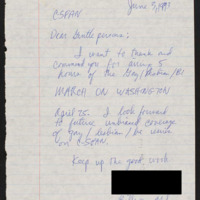 June 5, 1993
CSPAN
Dear Gentle persons:
I want to thank and
commend you for airing 5
hours of the Gay/Lesbian/Bi
MARCH ON WASHINGTON
April 25. I look forward
to future unbiased coverage
of gay/lesbian/bi events
on C-SPAN.
Keep up the good work